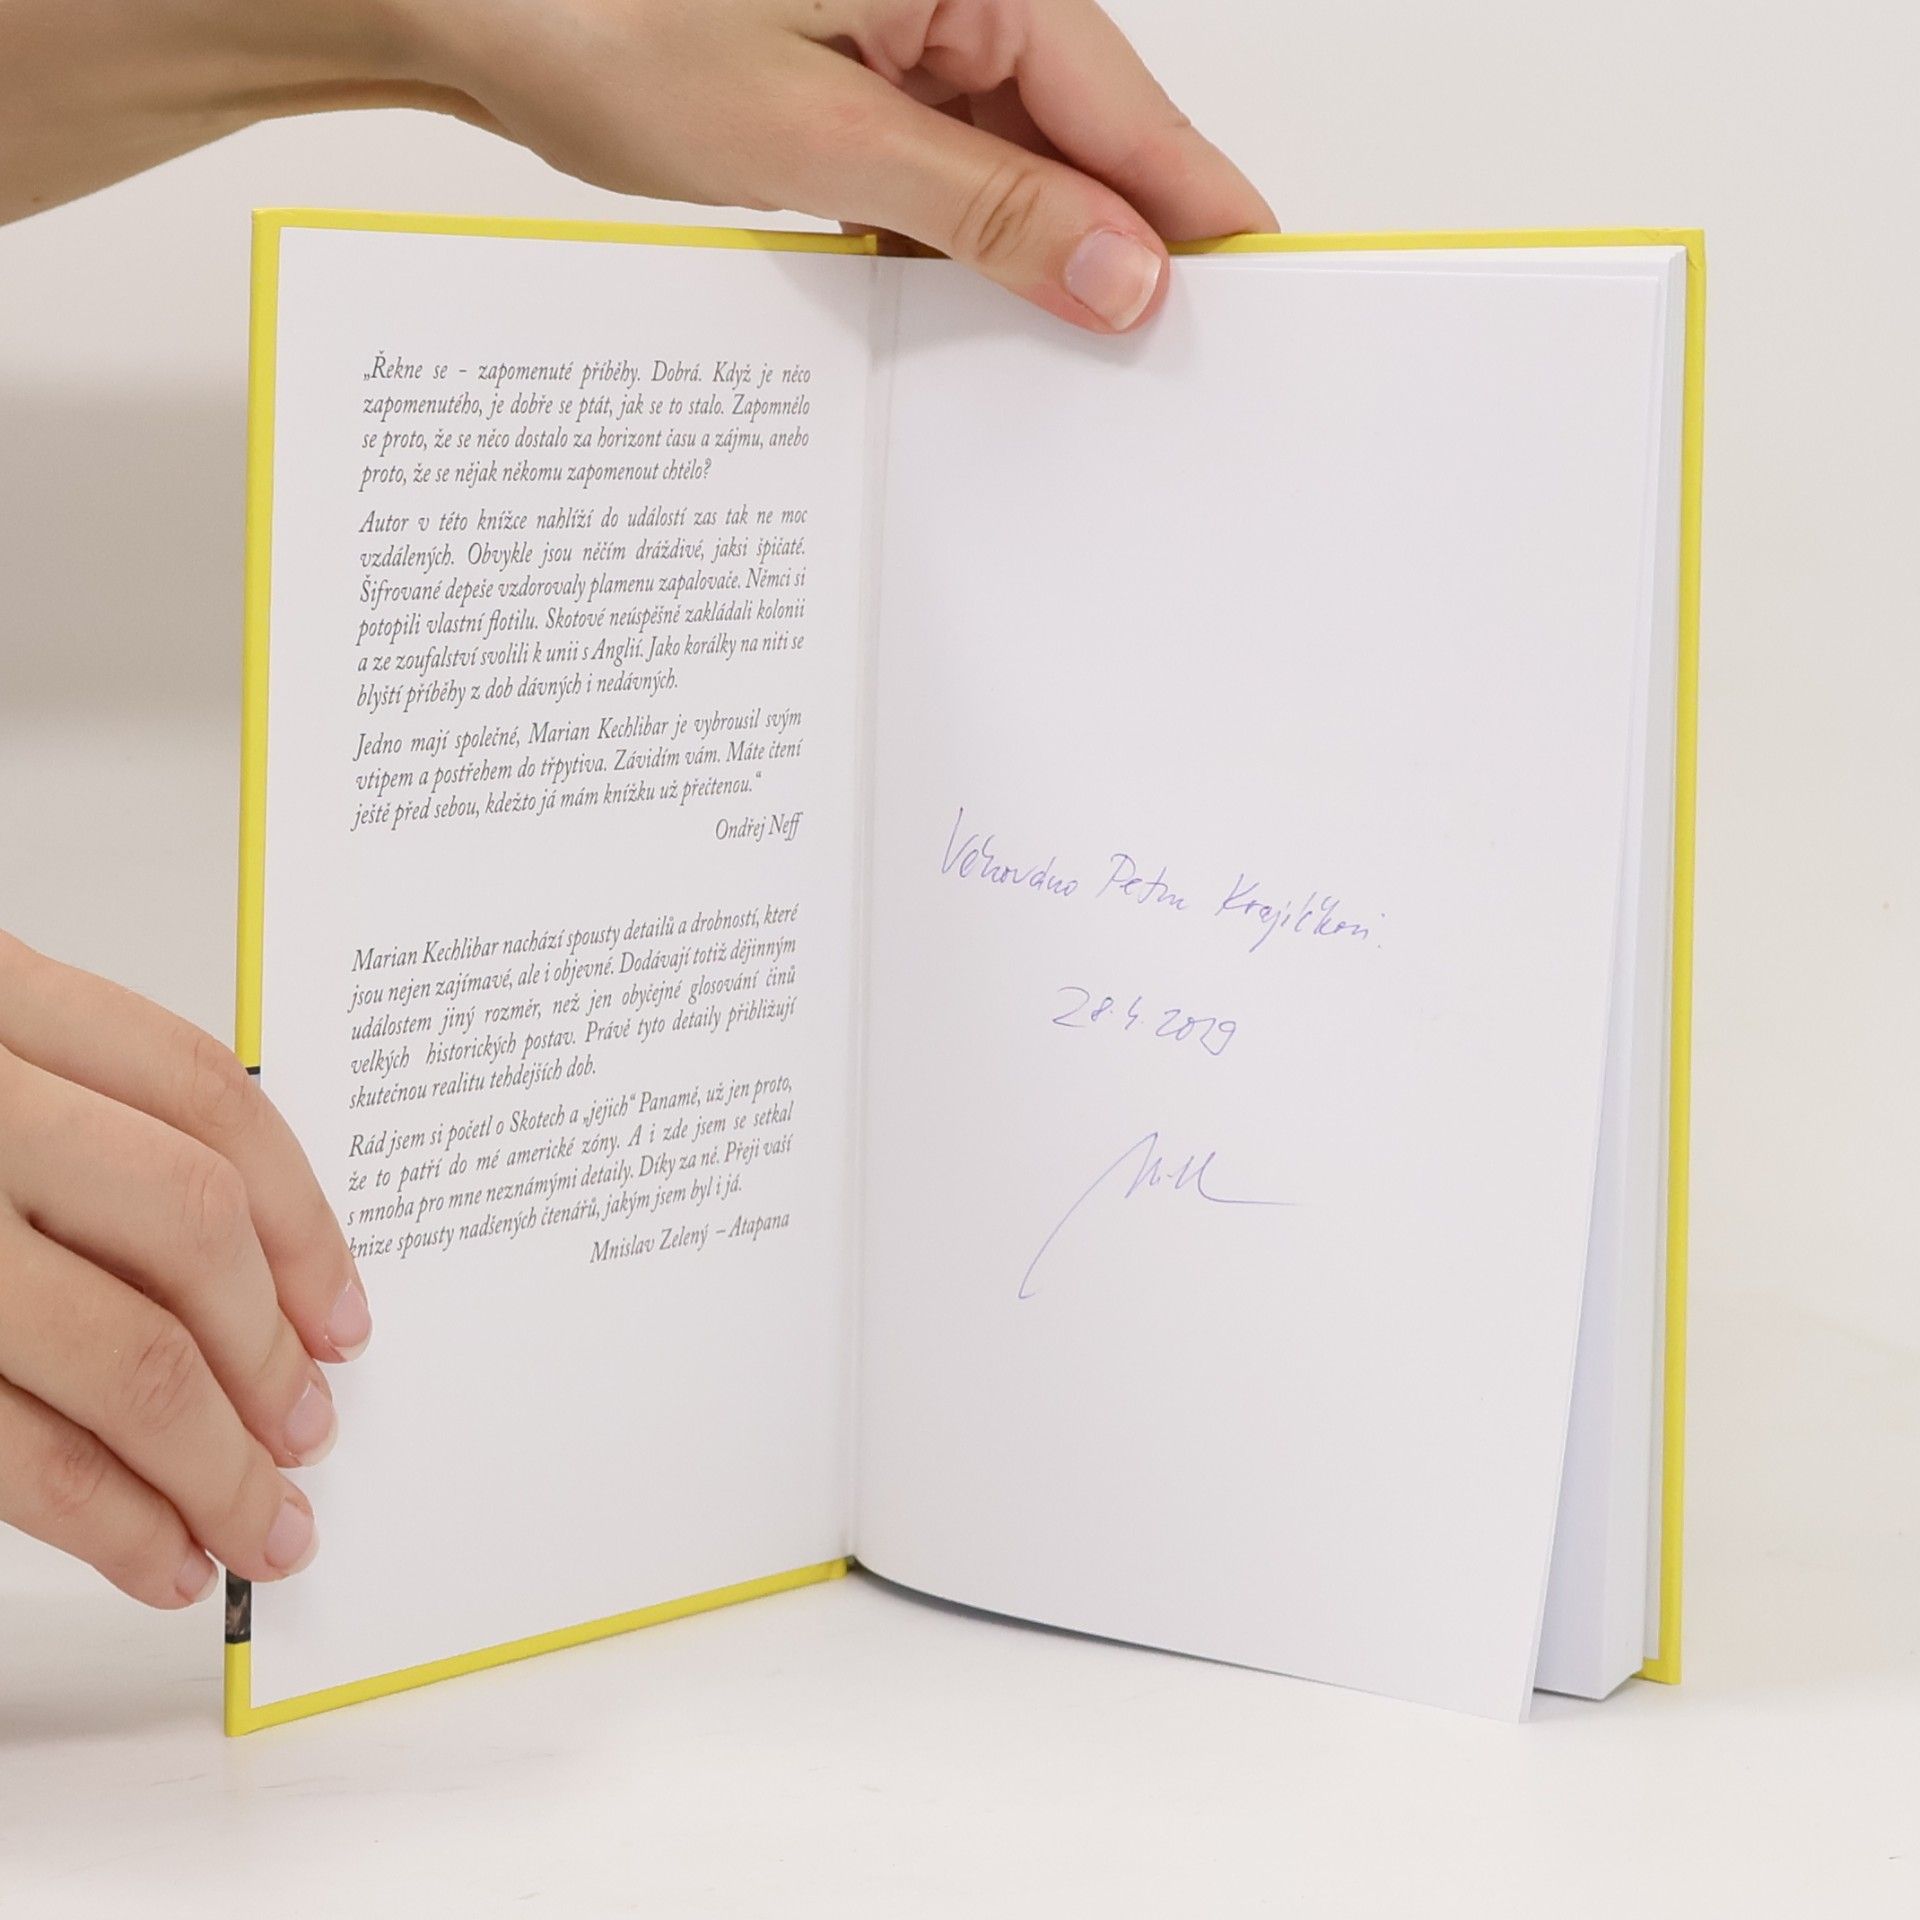 „Řekne se – zapomenuté příběhy. Dobrá. Když je něco
zapomenutého, je dobře se ptát, jak se to stalo. Zapomnělo
se proto, že se něco dostalo za horizont času a zájmu, anebo
proto, že se nějak někomu zapomenout chtělo?
Autor v této knížce nahlíží do událostí zas tak ne moc
vzdálených. Obvykle jsou něčím dráždivé, jaksi špičaté.
Šifrované depeše vzdorovaly plamenu zapalovače. Němci si
potopili vlastní flotilu. Skotové neúspěšně zakládali kolonii
a ze zoufalství svolili k unii s Anglií. Jako korálky na niti se
blyští příběhy z dob dávných i nedávných.
Jedno mají společné, Marian Kechlibar je vybrousil svým
vtipem a postřehem do třpytiva. Závidím vám. Máte čtení
ještě před sebou, kdežto já mám knížku už přečtenou.“
Ondřej Neff
Marian Kechlibar nachází spousty detailů a drobností, které
jsou nejen zajímavé, ale i objevné. Dodávají totiž dějinným
událostem jiný rozměr, než jen obyčejné glosování činů
velkých historických postav. Právě tyto detaily přibližují
skutečnou realitu tehdejších dob.
Rád jsem si početl o Skotech a „jejich“ Panamě, už jen proto,
že to patří do mé americké zóny. A i zde jsem se setkal
s mnoha pro mne neznámými detaily. Díky za ně. Přeji vaší
knize spousty nadšených čtenářů, jakým jsem byl i já.
Mnislav Zelený – Atapana
Věnováno Petru Krajíčkovi.
28.4.2019